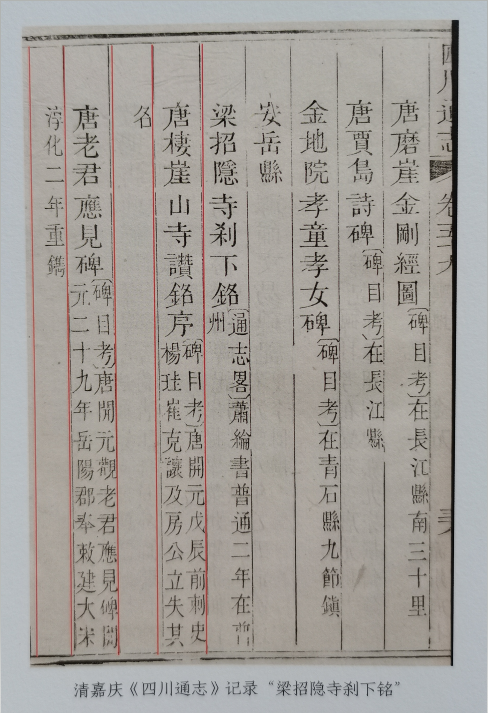 四川通志
卷五十九
唐磨崖金剛經圖〔碑目考〕在長江縣南三十里
唐賈島詩碑〔碑目考〕在長江縣
金地院孝童孝女碑〔碑目考〕在青石縣九節鎮
安岳縣
梁招隱寺刹下銘〔通志畧〕蕭綸書普通二年在普
州
唐棲崖山寺讚銘序〔碑目考〕唐開元戊辰前刺史
楊珪崔克讓及房公立失其
名
唐老君應見碑〔碑目考〕唐開元觀老君應見碑開
元二十九年岳陽郡奉敕建大宋
淳化二年重鐫
清嘉庆《四川通志》记录“梁招隐寺刹下铭”